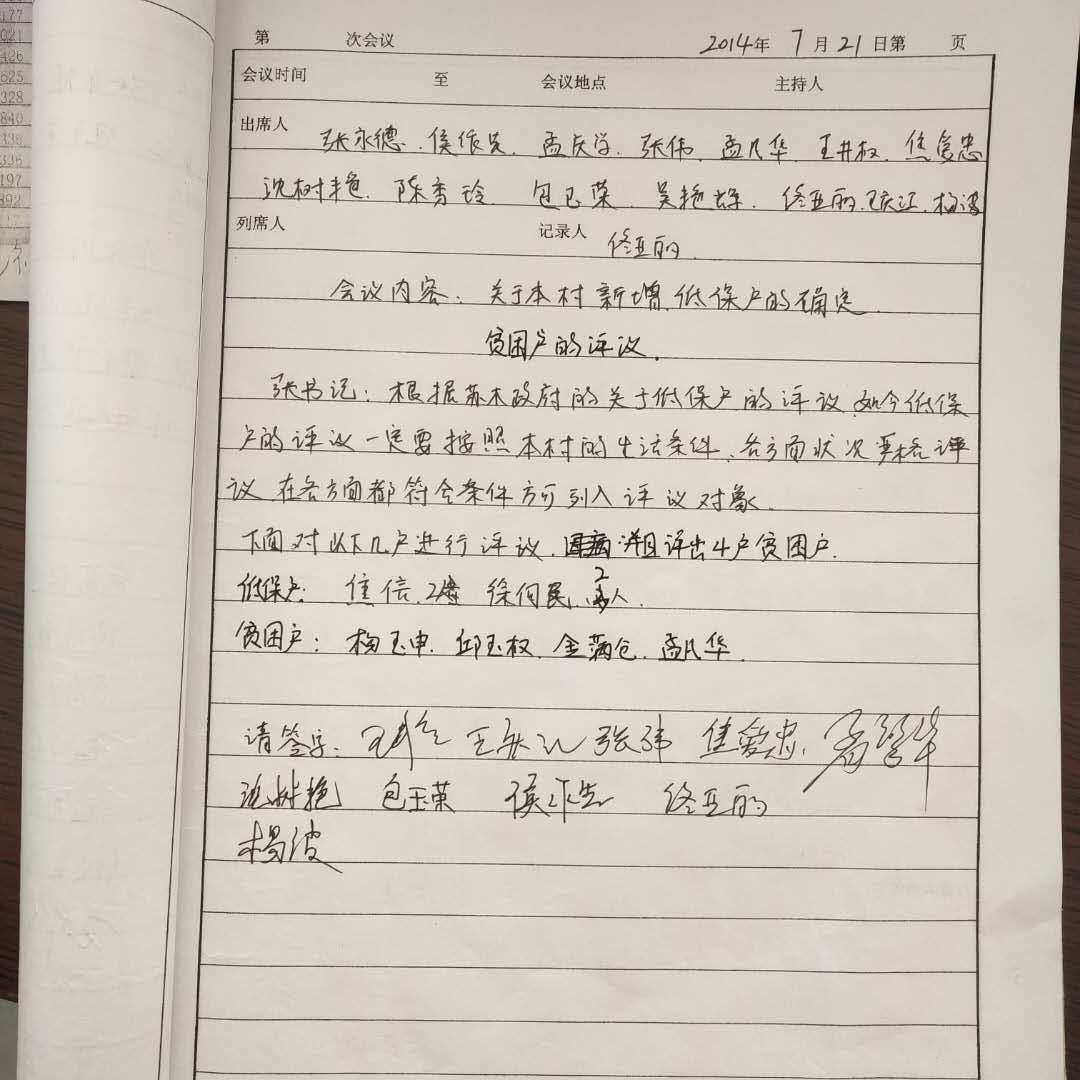 177
021
426
625
328
840
338
335
197
892
第 次会议 2014年 7月21日第 页
会议时间 至 会议地点 主持人
出席人
张永德、侯作先、孟庆学、张伟、孟凡华、王井权、焦爱忠
沈树艳、陈秀玲 包玉荣、吴艳辉、佟亚丽、王庆江、杨波
列席人 记录人 佟亚丽
会议内容:关于本村新增低保户的确定
贫困户的评议。
张书记:根据苏木政府的关于低保户的评议,如今低保
户的评议一定要按照本村的生活条件、各方面状况严格评
议 在各方面都符合条件方可列入评议对象。
下面对以下几户进行评议, 并且评出4户贫困户.
低保户: 焦信, 徐向民, 2人.
贫困户:杨玉申、邱玉权、金满仓、孟凡华.
请签字: 张伟 焦爱忠
沈树艳 包玉荣 侯作先 佟亚丽
杨波